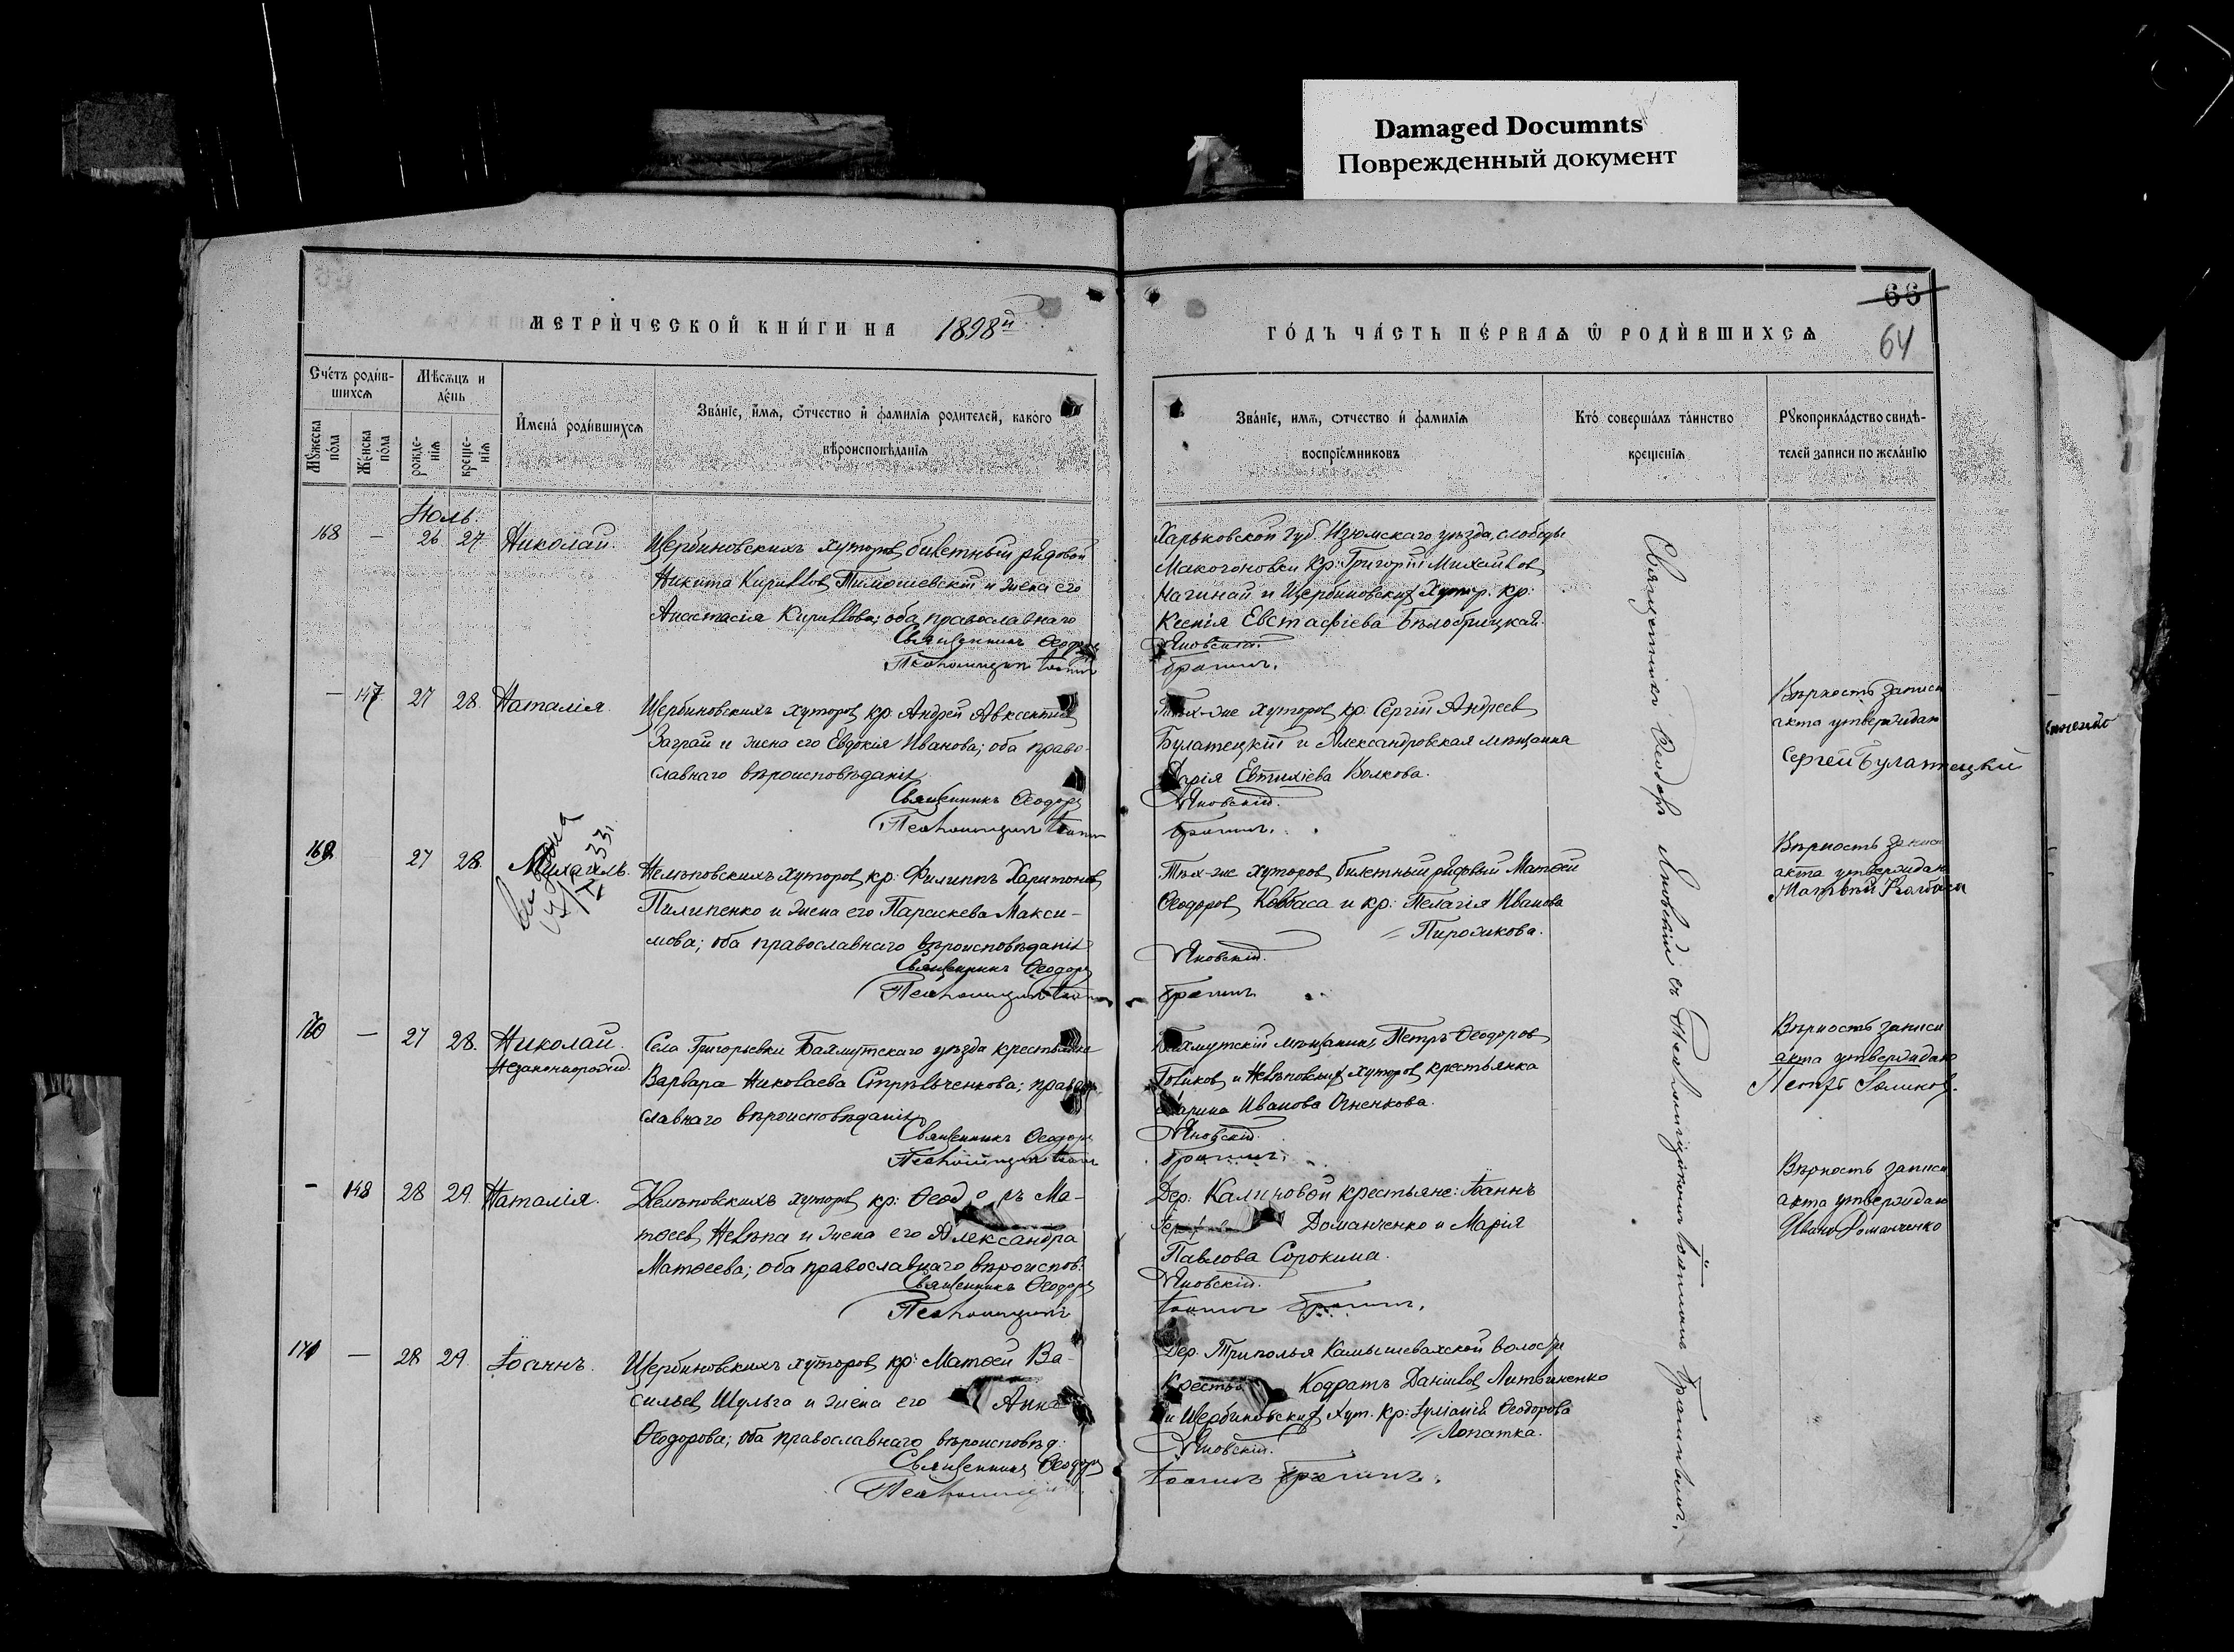 Damaged Documnts
Поврежденный документ
МЕТРИ́ЧЕСКОЙ КНИ́ГИ НА 1898й
ГО́ДЪ ЧА́СТЬ ПЕ́РВАѦ Ѡ РОДИ́ВШИХСѦ
66
64
Сче́тъ роди́в-
шихсѧ
Мѣсѧцъ и
де́нь
Му́жеска
по́ла
Же́нска
по́ла
рожде-
нїѧ
креще-
нїѧ
Имена̀ роди́вшихсѧ
Зва́нїе, и́мѧ, ѻ́тчество и фами́лїѧ родителей, како́го
вѣроисповѣ́данїѧ
Зва́нїе, имѧ, ѻтчество и́ фамилїѧ
воспрїе́мниковъ
Кто́ соверша́лъ та́инство
креще́нїѧ
Рꙋкоприкла́дство свидѣ́-
телей записи по жела́нїю
Іюль.
168 — 26 27 Николай.
Щербиновскихъ хуторовъ билетный рядовой
Никита Кирилловъ Тимошевскій и жена его
Анастасія Кириллова; оба православнаго
Священникъ Ѳеодоръ
Харьковской губ. Изюмскаго уѣзда, слободы
Макогоновки кр: Григорій Михайловъ
Нагинай и Щербиновскихъ Хутор. кр:
Ксенія Евстафіева Бѣлобрицкая.
Яновскій.
— 147 27 28. Наталія.
Щербиновскихъ хуторовъ кр: Андрей Авксентіевъ
Заграй и жена его Евдокія Иванова; оба право-
славнаго вѣроисповѣданія
Священникъ Ѳеодоръ
Тѣх-же хуторовъ кр: Сергій Андреевъ
Булатецкій и Александровская мѣщанка
Дарія Евтихіева Волкова.
Яновскій.
Вѣрность записи
акта утверждаю
Сергей Булатецкий
169 27 28 Михаилъ.
Нелѣповскихъ хуторовъ кр: Филиппъ Харитоновъ
Пилипенко и жена его Параскева Макси-
мова; оба православнаго вѣроисповѣданія
Священникъ Ѳеодоръ
Тѣх-же хуторовъ билетный рядовый Матѳей
Ѳеодоровъ Ковбаса и кр: Пелагія Иванова
Пирожкова.
Яновскій.
Вѣрность записи
акта утверждаю
170 — 27 28. Николай.
Незаконнорожд.
Села Григорьевки Бахмутскаго уѣзда крестьянка
Варвара Николаева Стрѣльченкова; право-
славнаго вѣроисповѣданія
Священникъ Ѳеодоръ
Бахмутскій мѣщанинъ Петръ Ѳеодоровъ
Голиковъ и Нелѣповскихъ хуторовъ крестьянка
Марина Иванова Огненкова.
Яновскій.
Вѣрность записи
акта утверждаю
Петръ Голиковъ
— 148 28 29. Наталія.
Нелѣповскихъ хуторовъ кр: Ѳеодоръ Ма-
тѳеевъ Нелѣпа и жена его Александра
Матѳеева; оба православнаго вѣроиспов:
Священникъ Ѳеодоръ
Дер: Калиновой крестьяне: Іоаннъ
Доманченко и Марія
Павлова Сорокина.
Яновскій.
Вѣрность записи
акта утверждаю
Иванъ Доманченко
171 — 28 29. Іоаннъ.
Щербиновскихъ хуторовъ кр: Матѳей Ва-
сильевъ Шульга и жена его Анна
Ѳеодорова; оба православнаго вѣроисповѣд:
Священникъ Ѳеодоръ
Дер. Триполья Камышевахской волости
Кодратъ Даніиловъ Литвиненко
и Щербиновскихъ Хут. кр: Іуліанія Ѳеодорова
Лопатка.
Яновскій.
Священникъ Ѳеодоръ Яновскій съ